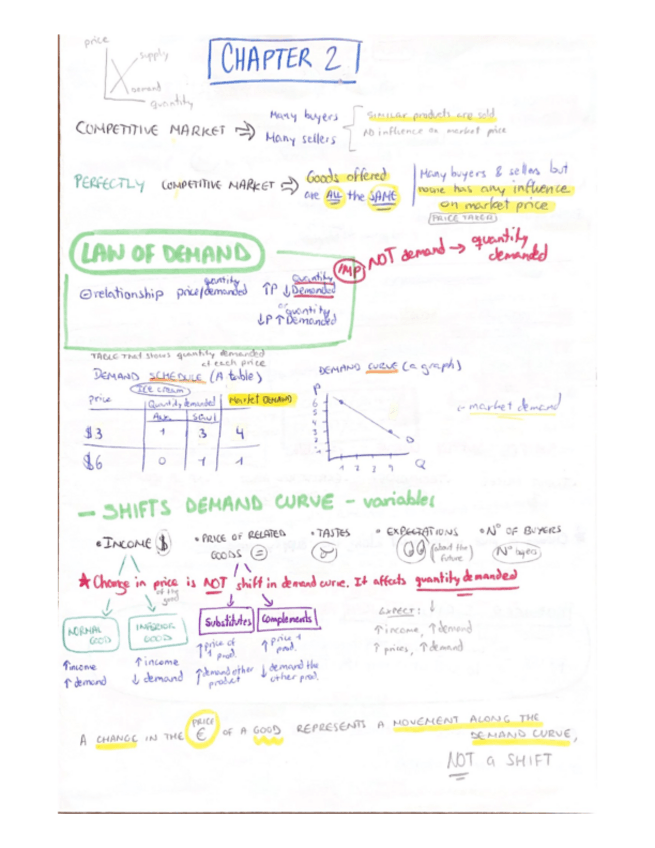 price
supply
demand
quantity
CHAPTER 2
COMPETITIVE MARKET ⇒
Many buyers
Many sellers
Similar products are sold
NO influence on market price
PERFECTLY COMPETITIVE MARKET ⇒
Goods offered
are ALL the SAME
Many buyers & sellers but
none has any influence
on market price
(PRICE TAKER)
LAW OF DEMAND
IMP NOT demand → quantity
demanded
⊖ relationship price/quantity demanded
↑P ↓ Quantity Demanded
or
↓P ↑ quantity Demanded
TABLE that shows quantity demanded
at each price
DEMAND SCHEDULE (A table)
Ice cream
price Quantity demanded Market DEMAND
$3 1 3 4
$6 0 1 1
DEMAND CURVE (a graph)
P
6
5
4
3
2
1
D
1 2 3 4 Q
market demand
- SHIFTS DEMAND CURVE - variables
• INCOME $
• PRICE OF RELATED
GOODS
• TASTES
• EXPECTATIONS
(about the
future)
• Nº OF BUYERS
Nº buyers
★ Change in price is NOT shift in demand curve. It affects quantity demanded
of the
good
NORMAL
GOOD
↑ income
↑ demand
INFERIOR
GOOD
↑ income
↓ demand
Substitutes
↑ price of
1 prod.
↑ demand other
product
Complements
↑ price 1
prod.
↓ demand the
other prod.
expect: ↓
↑ income, ↑ demand
↑ prices, ↑ demand
A CHANGE IN THE PRICE € OF A GOOD REPRESENTS A MOVEMENT ALONG THE
DEMAND CURVE,
NOT a SHIFT